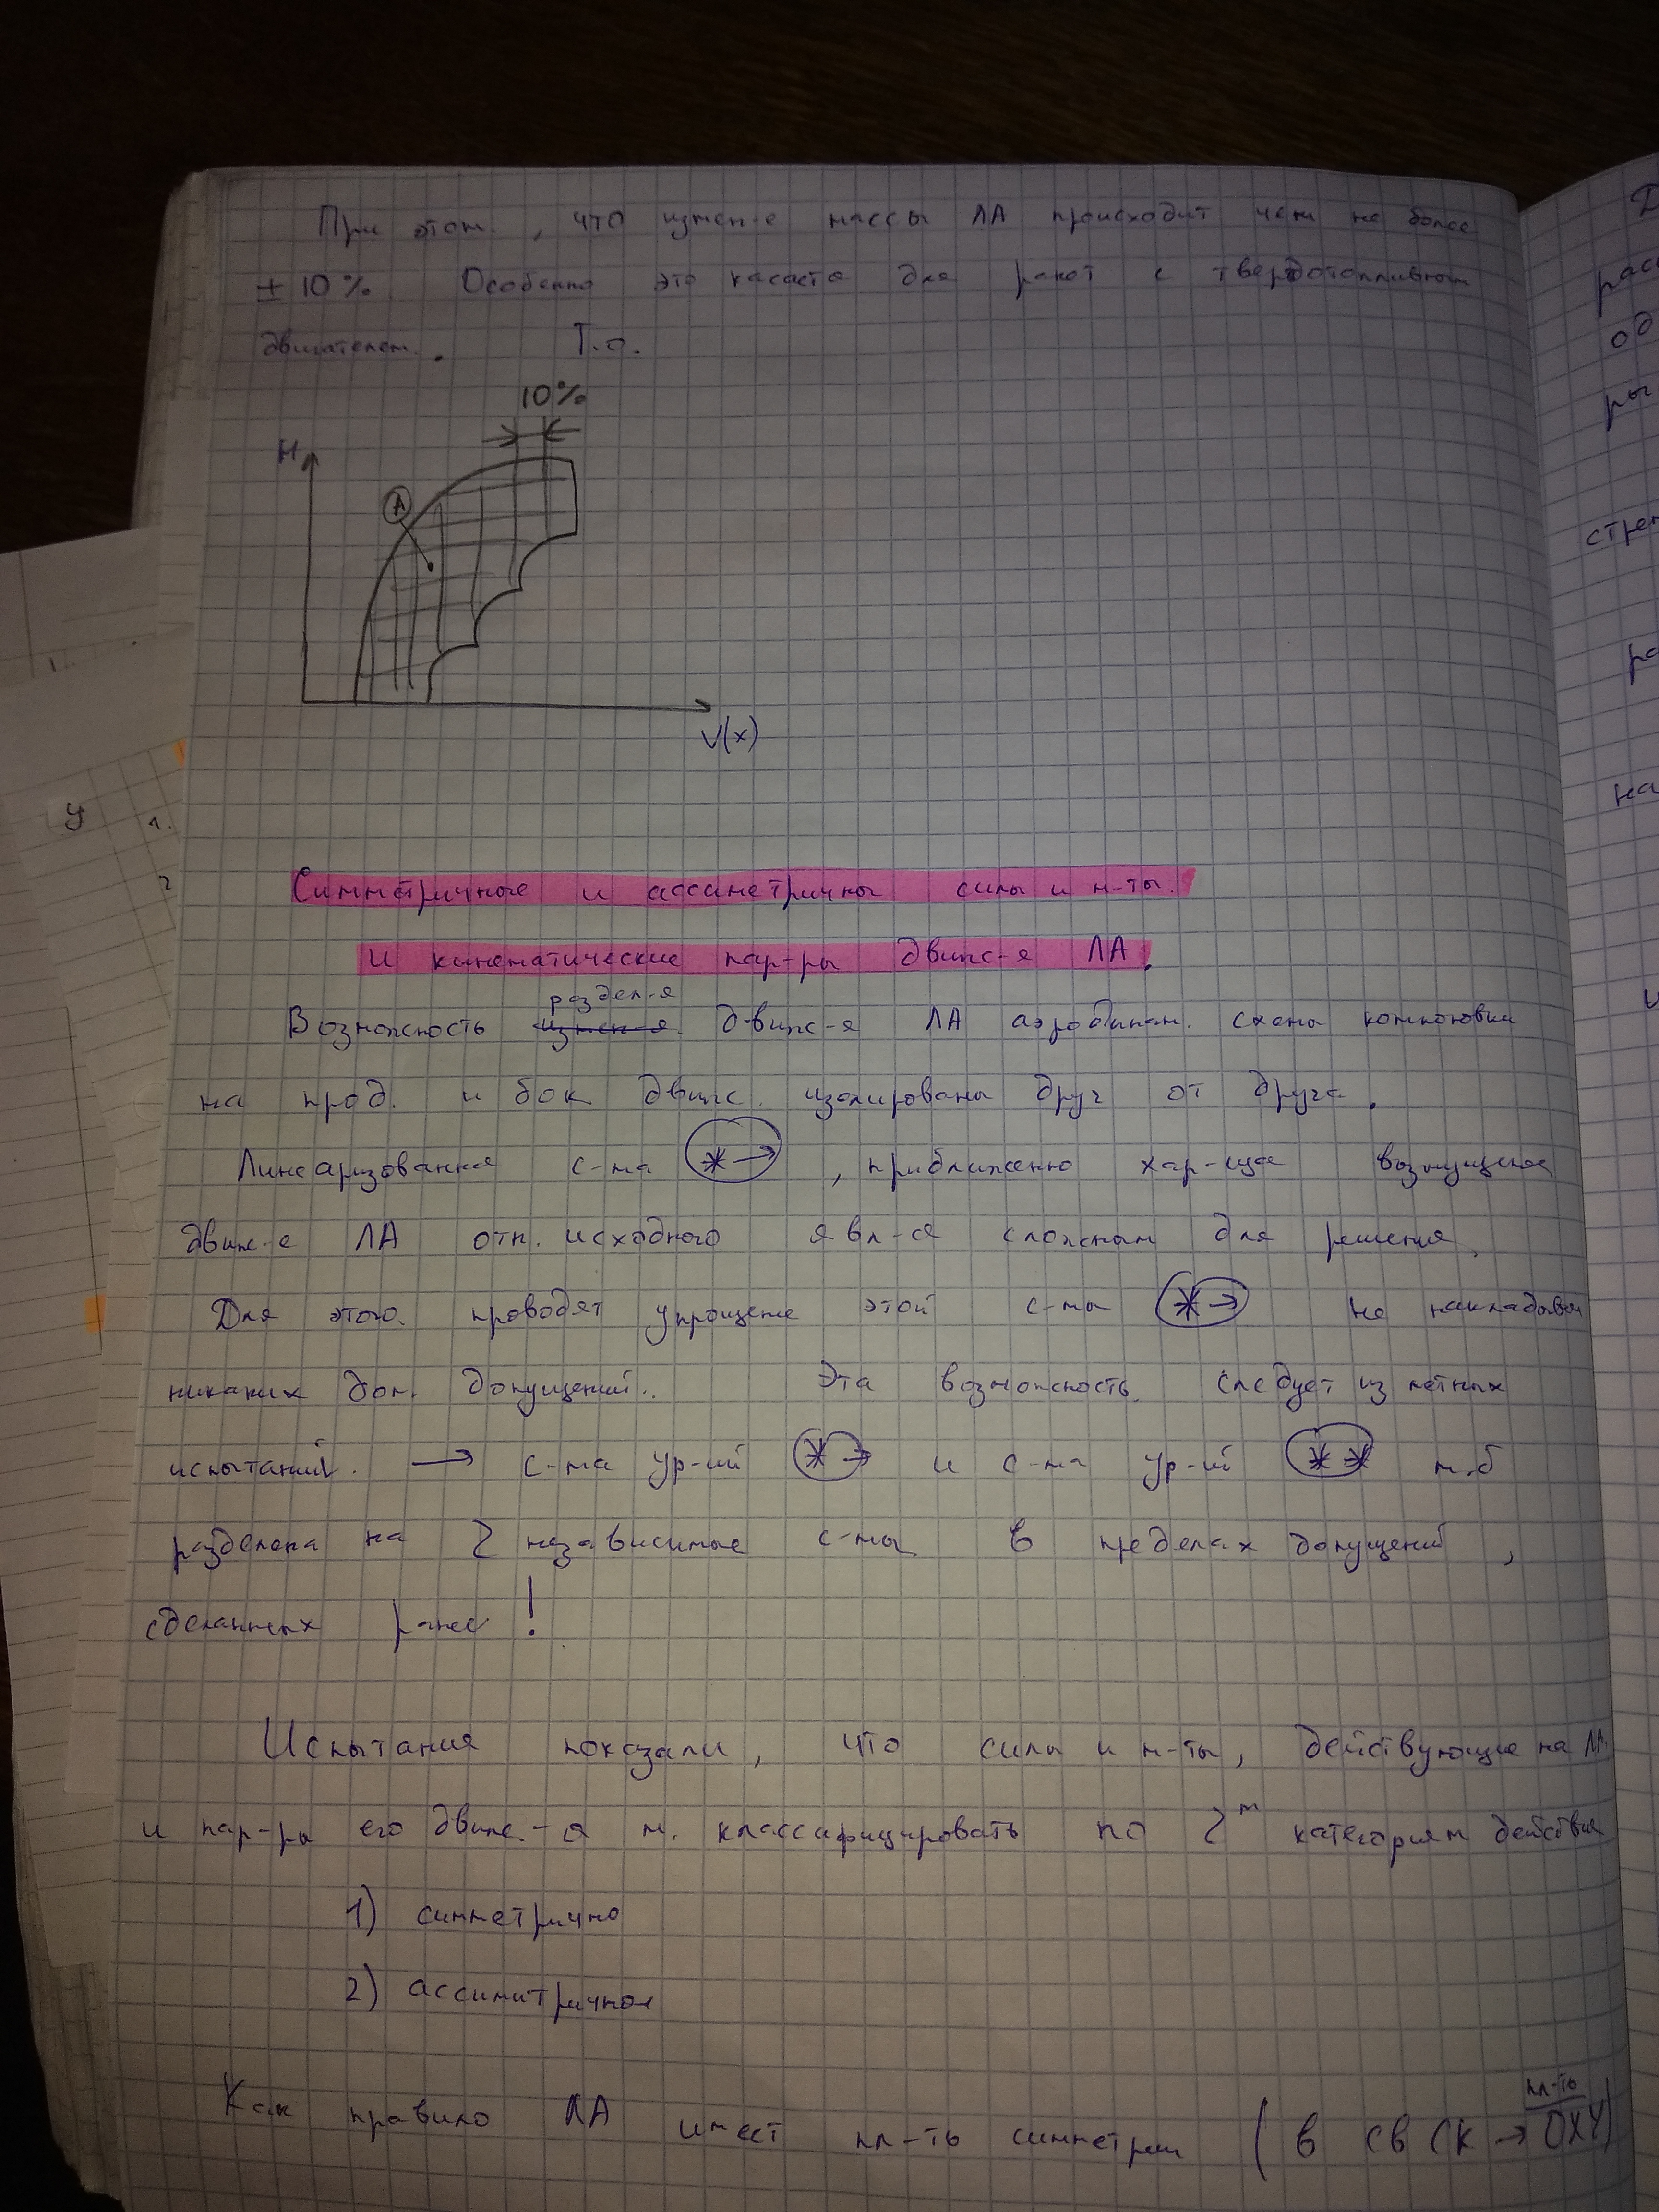 При этом, что измен-е массы ЛА происходит чем на более
± 10% Особенно это касается для ракет с твердотопливным
двигателем. Т.о.
10%
H
A
V(x)
Симметричные и ассиметричны силы и м-ты.
И кинематические пар-ры движ-я ЛА.
раздел-я
Возможность измен-я движ-я ЛА аэродинам. схемы компоновки
на прод. и бок движ. изолированы друг от друга.
Линеаризованная с-ма * → , приближенно хар-щая возмущенное
движ-е ЛА отн. исходного явл-ся сложным для решения.
Для этого проводят упрощение этой с-мы * → не накладывая
никаких доп. допущений. Эта возможность следует из летных
испытаний. → с-ма ур-ий * → и с-ма ур-ий ** м.б
разделена на 2 независимые с-мы в пределах допущений,
сделанных ранее!
Испытания показали, что силы и м-ты, действующие на ЛА
и пар-ры его движ-я м. классифицировать по 2м категориям действия
1) симметрично
2) ассимитричное
Как правило ЛА имеет пл-ть симметрии (в СВ СК → пл-ть OXY)
У
1.
2